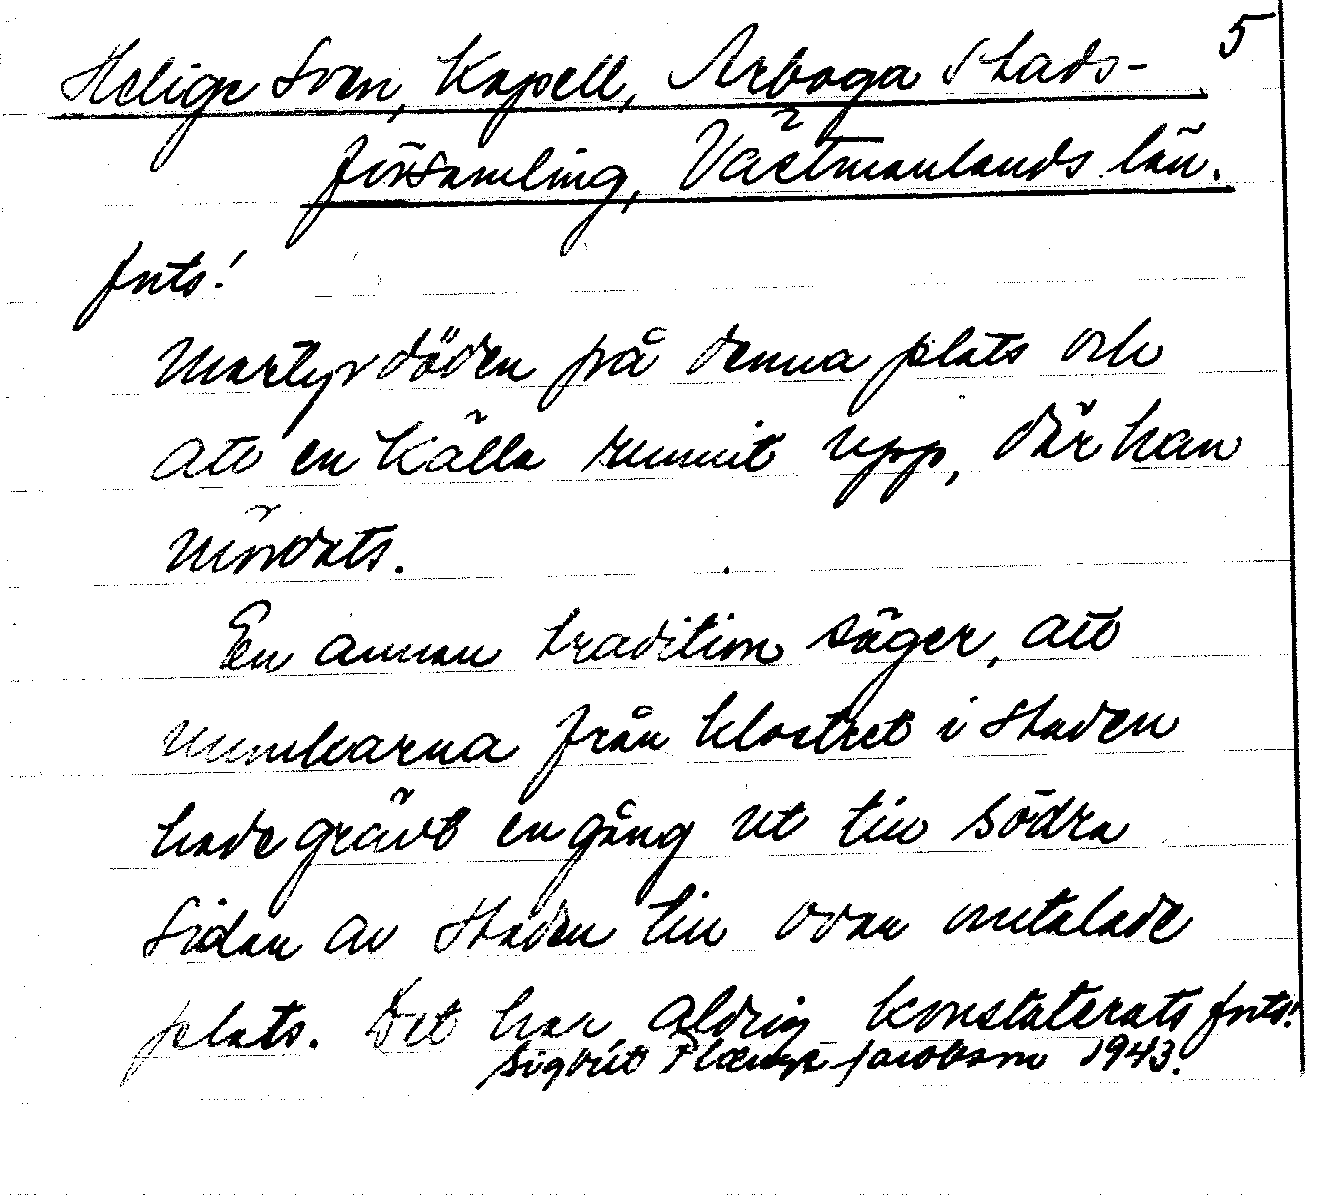 5
Helige Sven, Kapell, Arboga Stads-
församling, Västmanlands län.
forts!
martyrdöden på denna plats och
att en källa runnit upp, där han
mördats.
En annan tradition säger, att
munkarna från klostret i staden
hade grävt en gång ut till södra
sidan av staden till ovan omtalade
plats. Det har aldrig konstaterats forts!
Sigbrit Plænge Jacobson 1943.